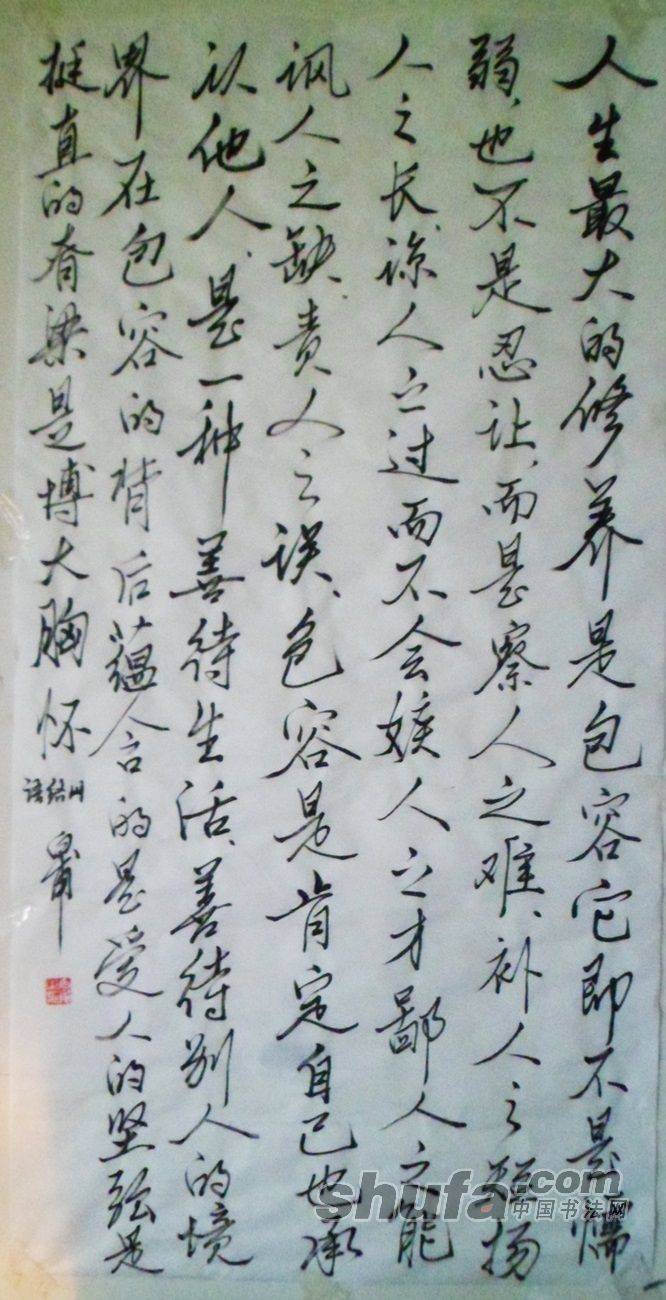 人生最大的修养是包容它即不是懦
弱、也不是忍让、而是察人之难、补人之短扬
人之长、谅人之过而不会嫉人之才鄙人之能
讽人之缺、责人之误、包容是肯定自己也承
认他人、是一种善待生活、善待别人的境
界在包容的背后蕴含的是爱人的坚强是
挺直的脊梁是博大胸怀
shufa.com
中国书法网